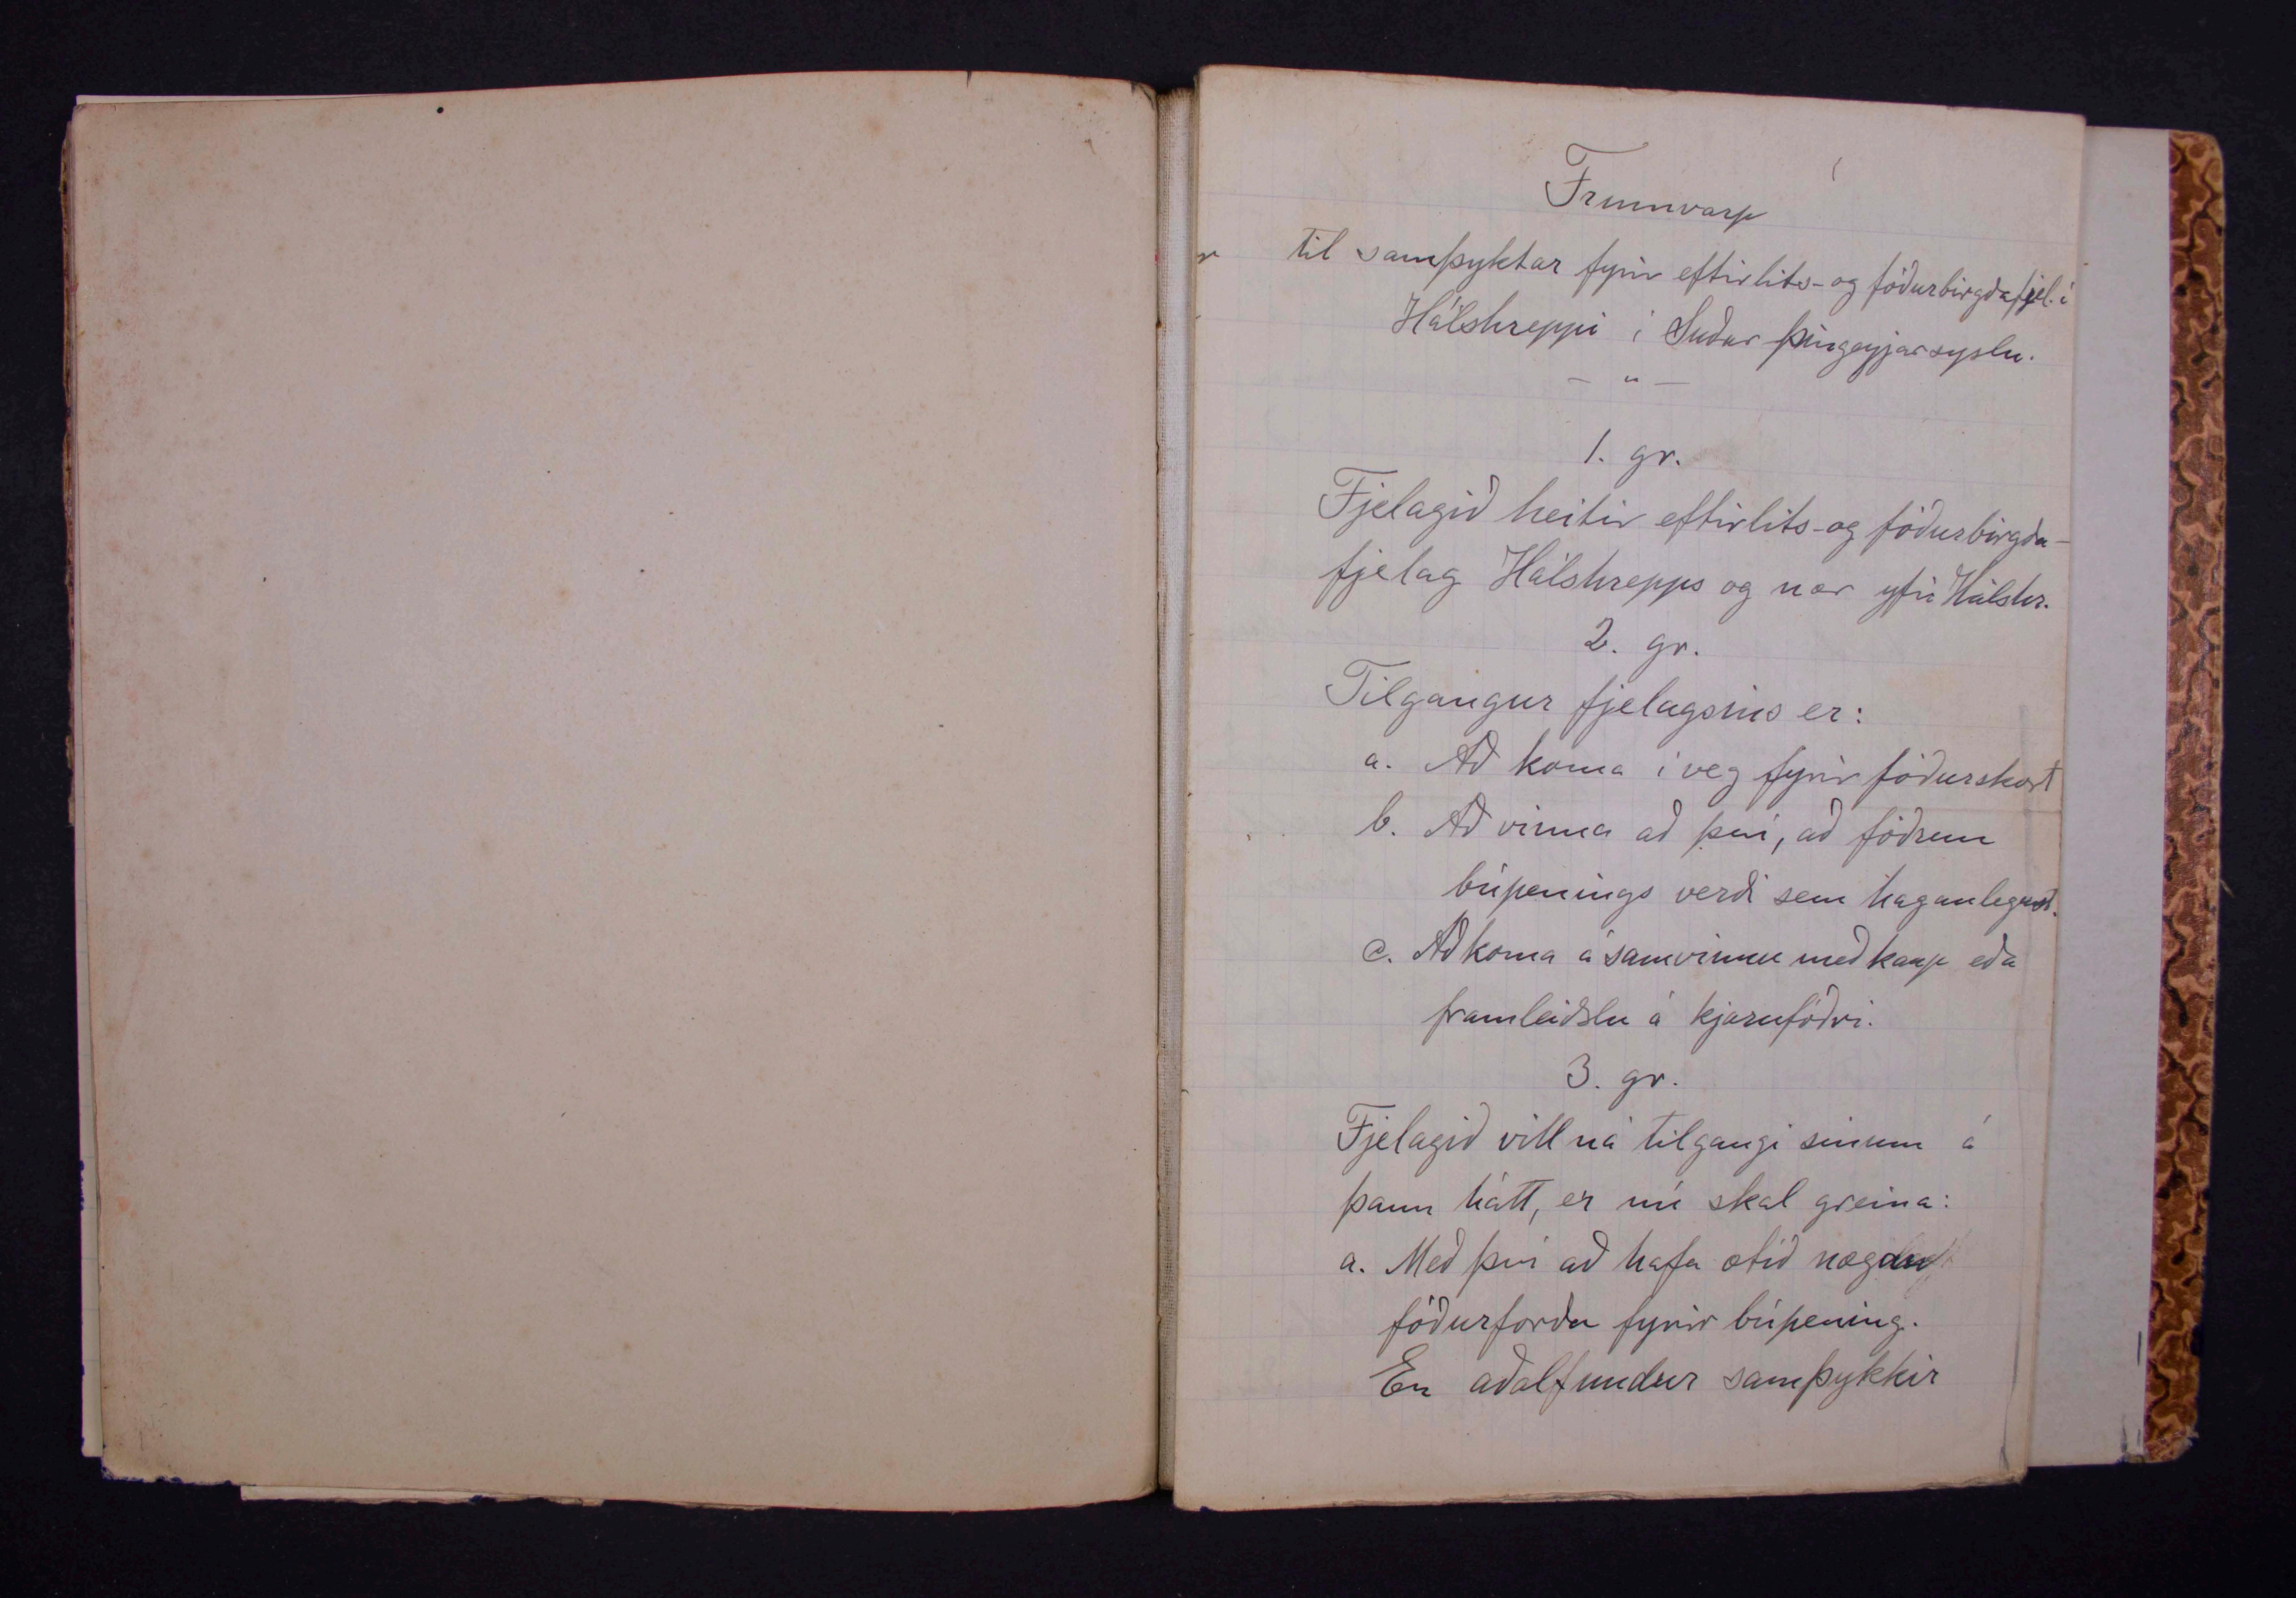 Frumvarp
til samþyktar fyrir eftirlits- og fóðurbirgðafjel. í
Hálshreppi í Suður þingeyjarsyslu.
— " —
1. gr.
Fjelagið heitir eftirlits- og fóðurbirgða-
fjelag Hálshrepps og nær yfir Hálshr.
2. gr.
Tilgangur fjelagsins er:
a. Að koma í veg fyrir fóðurskort
b. Að vinna að því, að fóðrun
búpenings verði sem haganlegust.
c. Að koma á samvinnu með kaup eða
framleiðslu á kjarnfóðri.
3. gr.
Fjelagið vill ná tilgangi sínum á
þann hátt, er nú skal greina:
a. Með því að hafa ætíð
fóðurforða fyrir búpening.
En aðalfundur samþykkir